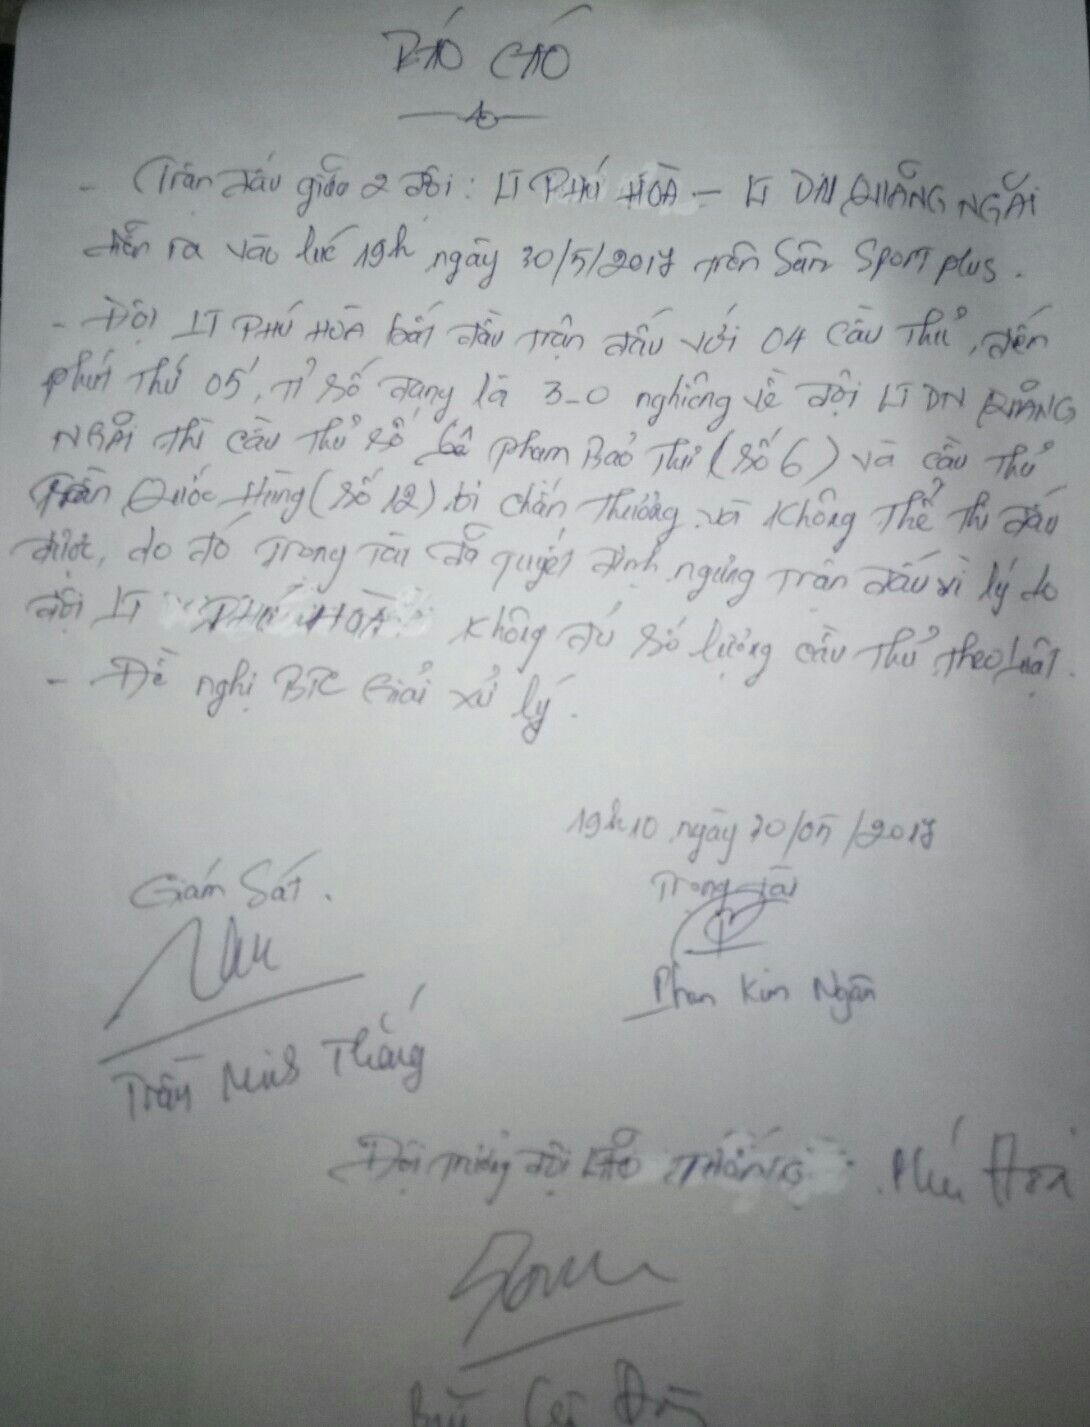 BÁO CÁO
- Trận đấu giữa 2 đội: LT PHÚ HOÀ - LT DN QUẢNG NGÃI
diễn ra vào lúc 19h ngày 30/5/2017 trên Sân Sport plus.
- Đội LT PHÚ HOÀ bắt đầu trận đấu với 04 cầu thủ, đến
phút thứ 05', tỉ số đang là 3-0 nghiêng về đội LT DN QUẢNG
NGÃI thì cầu thủ số Phạm Bảo Thư (số 6) và cầu thủ
Trần Quốc Hùng (số 12) bị chấn thương và không thể thi đấu
được, do đó trọng tài đã quyết định ngưng trận đấu vì lý do
đội LT PHÚ HOÀ không đủ số lượng cầu thủ theo luật.
- Đề nghị BTC Giải xử lý.
19h10 ngày 30/05/2017
Giám Sát.
Trọng tài
Phan Kim Ngân
Trần Minh Thắng
Đội trưởng đội Phú Hoà